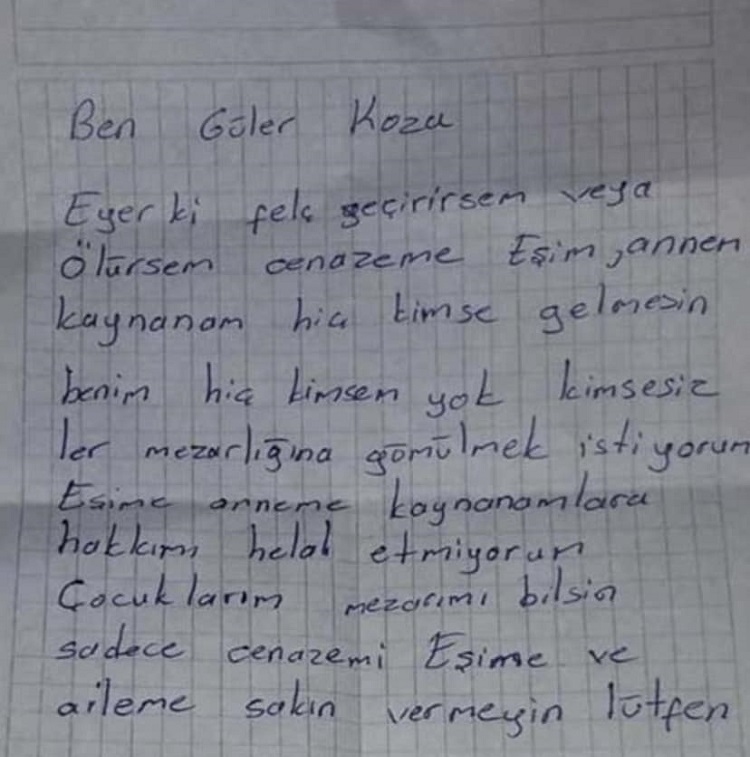 Ben Güler Kozu
Eyer ki felç geçirirsem veya
Ölürsem cenazeme Eşim, annem
kaynanam hiç kimse gelmesin
benim hiç kimsem yok kimsesiz
ler mezarlığına gömülmek istiyorum
Eşime anneme kaynanamlara
hakkımı helal etmiyorum
Çocuklarım mezarımı bilsin
sadece cenazemi Eşime ve
aileme sakın vermeyin lütfen